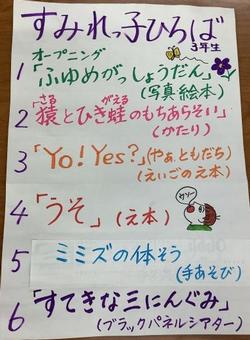 すみれっ子ひろば
3年生
オープニング
1 「ふゆめがっしょうだん」
(写真絵本)
さる がえる
2 「猿とひき蛙のもちあらそい」
(かたり)
3 「Yo! Yes?」(やぁ、ともだち)
(えいごのえ本)
4 「うそ」(え本)
ウソー
5 ミミズの体そう
(手あそび)
6 「すてきな三にんぐみ」
(ブラックパネルシアター)